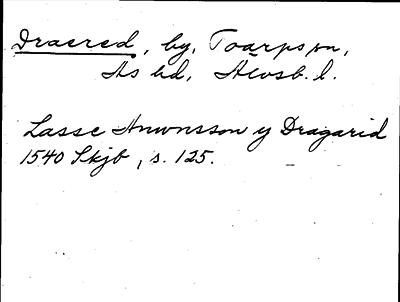 Draered, by, Toarps sn,
Ås hd, Älvsb. l.
Lasse Anwnsson y Dragarid
1540 Skjb, s. 125.